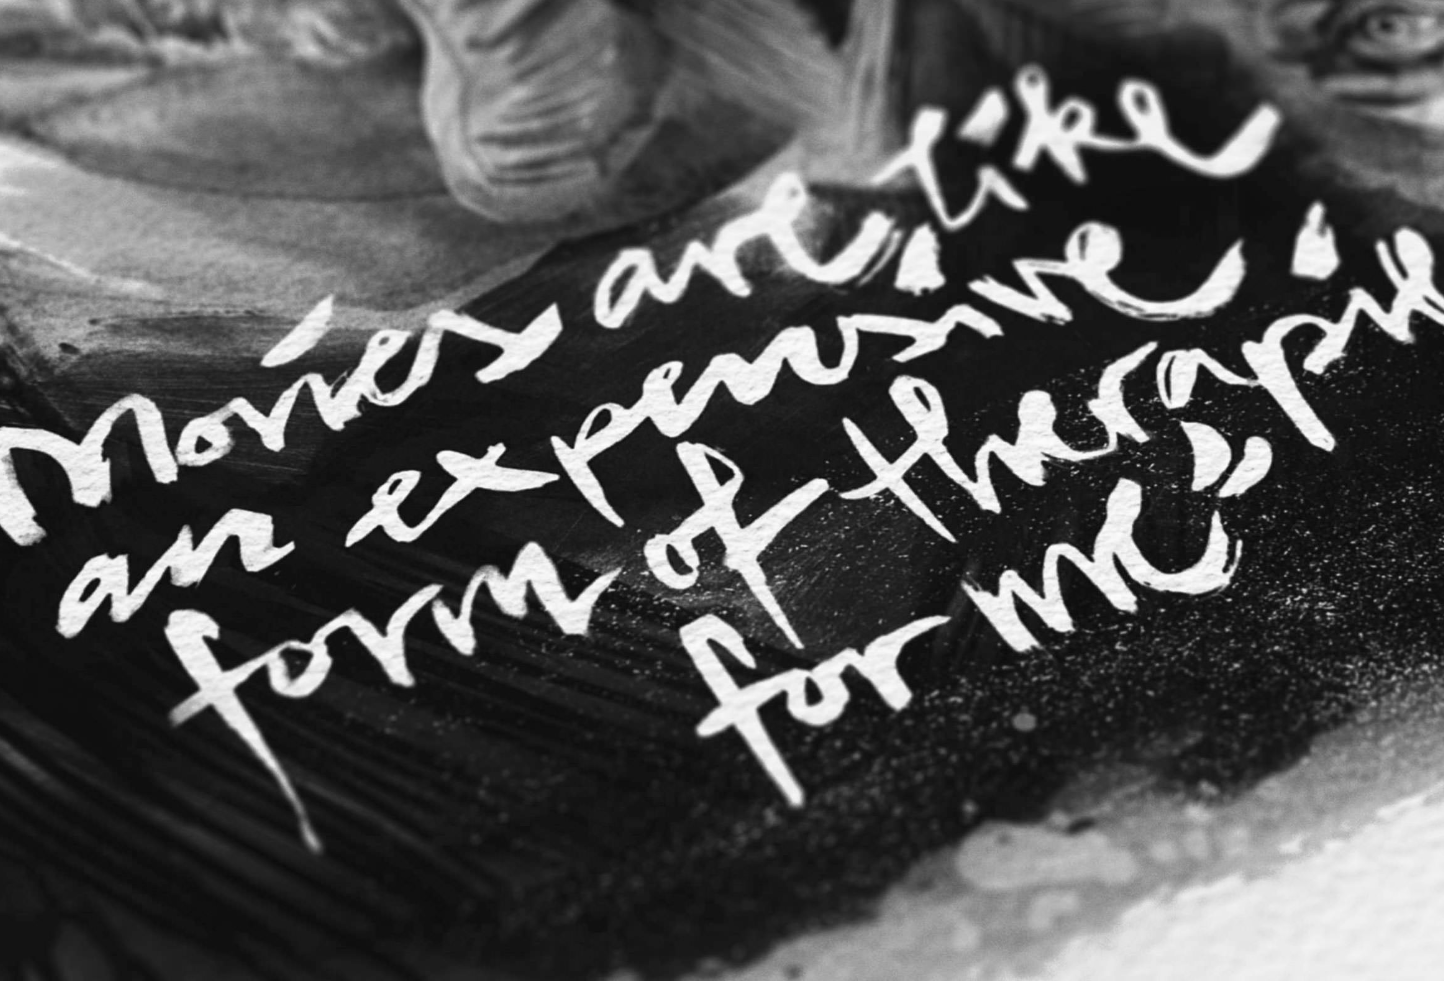 Movies are like
an expensive
form of therapie
for me”